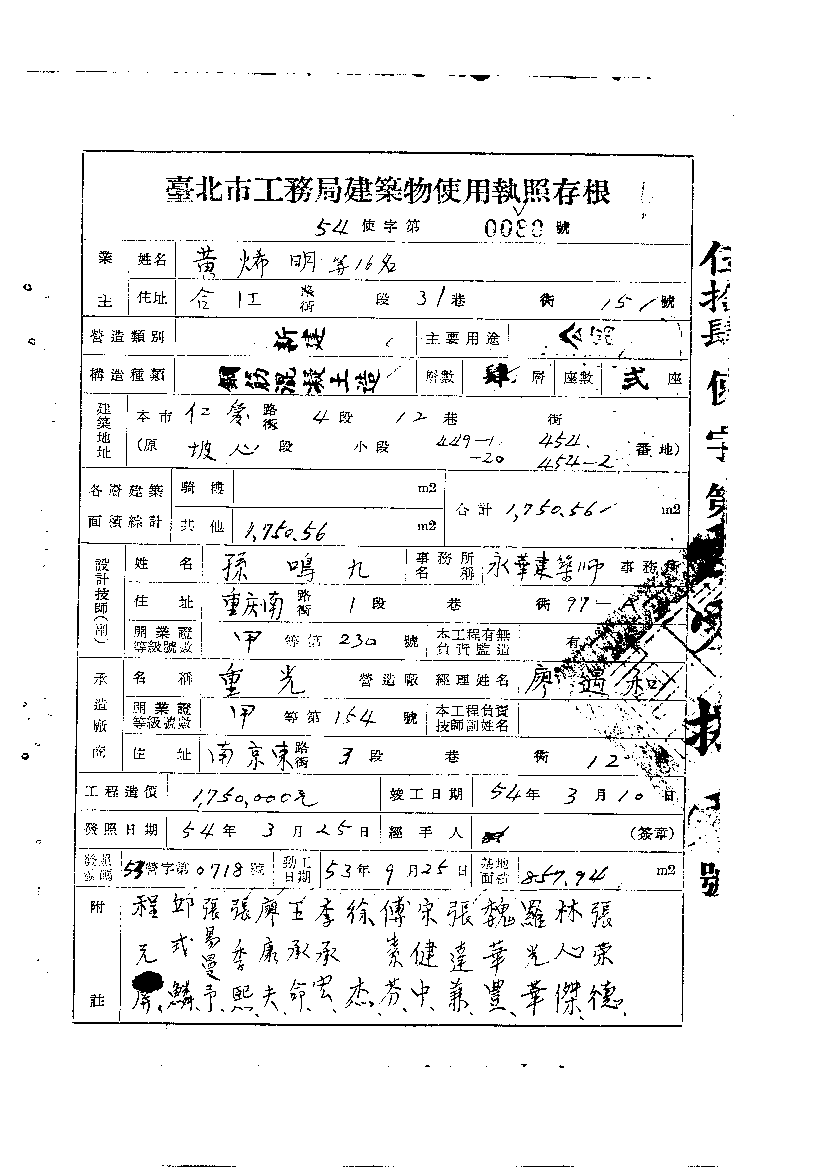 臺北市工務局建築物使用執照存根
54 使字第 0080 號
業主 姓名 黃烯明等16名
住址 合江 路街 段 31巷 街 151號
營造類別 新建 主要用途 公寓
構造種類 鋼筋混凝土造 層數 肆 層 座數 弍 座
建築地址 本市 仁愛 路街 4段 12巷 街
(原 坡心 段 小段 449-1 -20 454 454-2 番地)
各層建築面積綜計 騎樓 m2 合計 1,750.56 m2
其他 1,750.56 m2
設計技師(副) 姓名 孫鳴九 事務所名稱 永華建築師 事務所
住址 重慶南 路街 1段 巷 街 97-
開業證等級號數 甲 等第 230 號 本工程有無負責監造 有
承造廠商 名稱 重光 營造廠 經理姓名 廖遇和
開業證等級號數 甲 等第 154 號 本工程負責技師副姓名
住址 南京東 路街 3段 巷 街 12 號
工程造價 1,750,000元 竣工日期 54年3月10日
發照日期 54年3月25日 經手人 (簽章)
發照號碼 53營字第0718號 動工日期 53年9月25日 基地面積 857.94 m2
附註
張榮德
林心傑
羅光華
魏華豊
張達兼
宋健中
傅素芬
徐杰
李承宏
王承命
廖康夫
張香熙
張易曼予
邱式鱗
程元
伍拾肆使字第
號